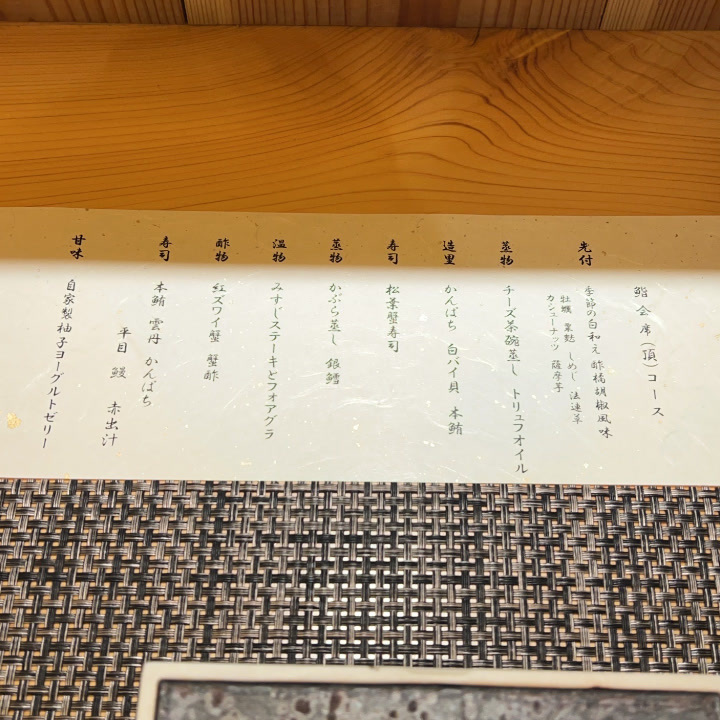 鮨会席(頂)コース
先付
季節の白和え 酢橘胡椒風味
牡蠣 粟麩 しめじ 法連草
カシューナッツ 薩摩芋
蒸物
チーズ茶碗蒸し トリュフオイル
造里
かんぱち 白バイ貝 本鮪
寿司
松葉蟹寿司
蒸物
かぶら蒸し 銀鱈
温物
みすじステーキとフォアグラ
酢物
紅ズワイ蟹 蟹酢
寿司
本鮪 雲丹 かんぱち
平目 鰻 赤出汁
甘味
自家製柚子ヨーグルトゼリー